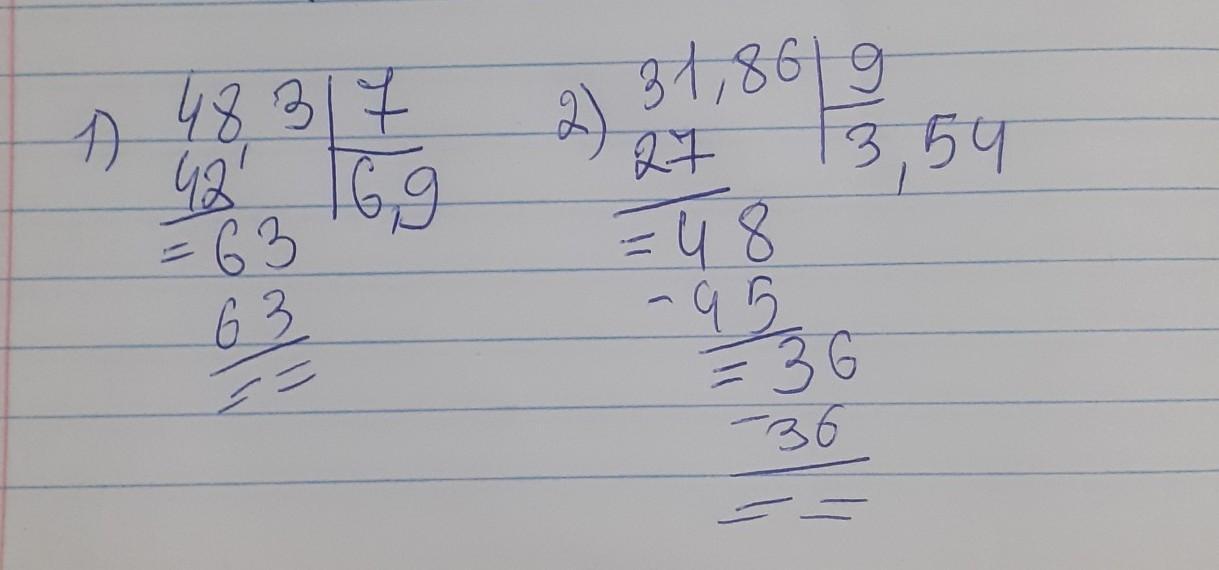 1) 48,3 | 7
42 | 6,9
= 63
63
= =
2) 31,86 | 9
27 | 3,54
= 48
- 45
= 36
- 36
= =